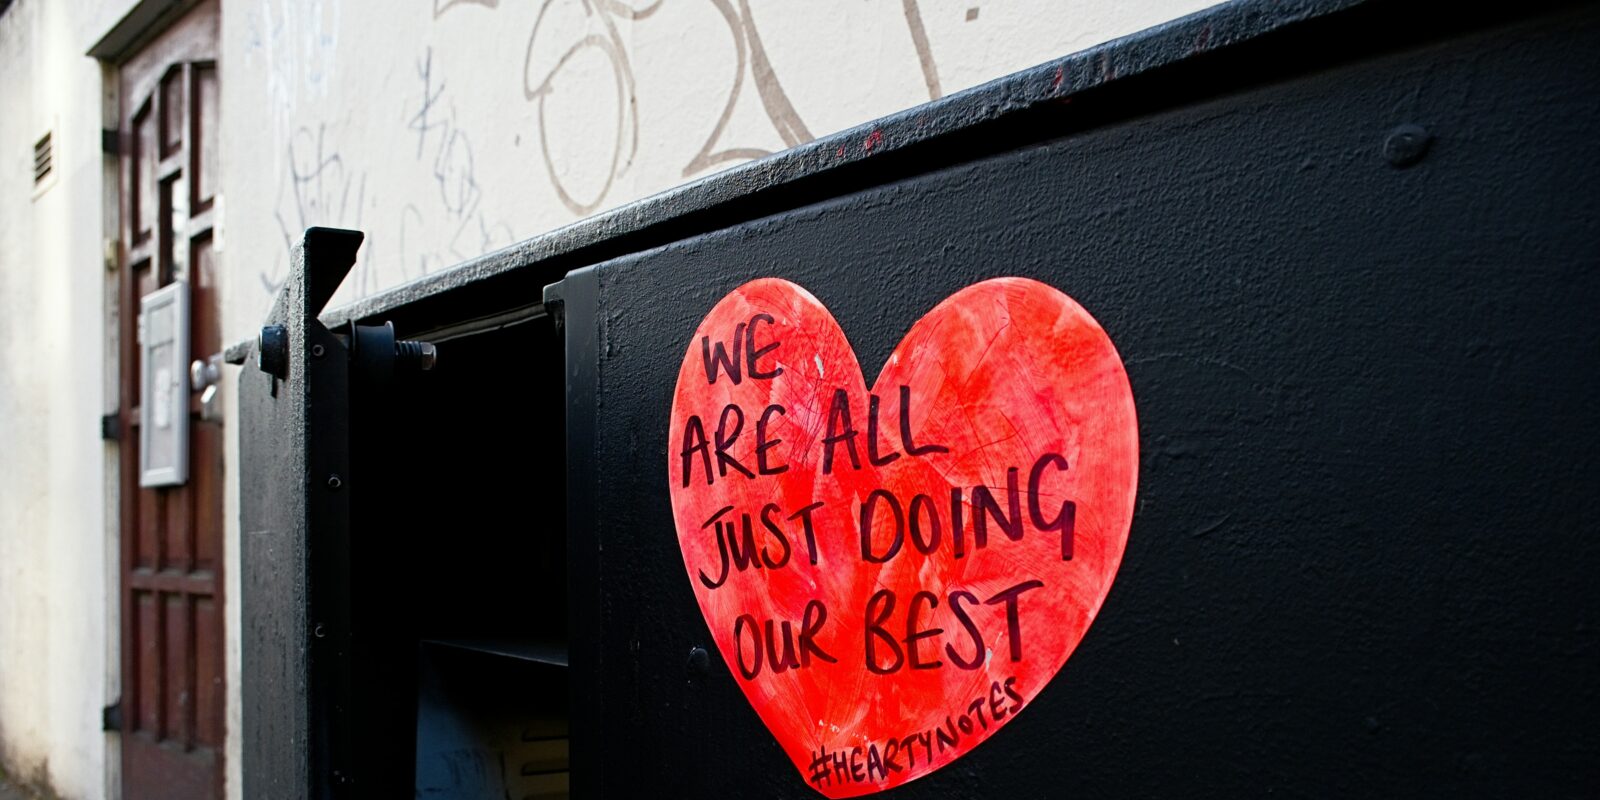 WE
ARE ALL
JUST DOING
OUR BEST
#HEARTYNOTES